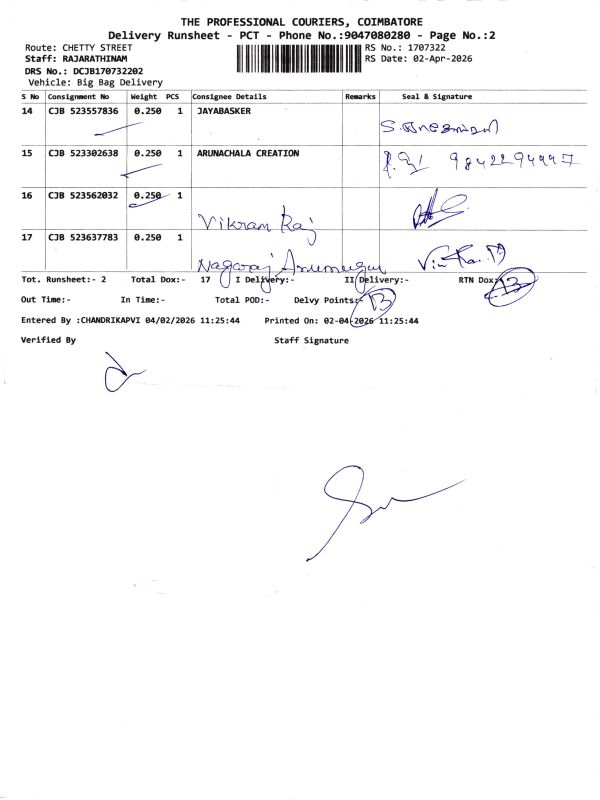 THE PROFESSIONAL COURIERS, COIMBATORE
Delivery Runsheet - PCT - Phone No.:9047080280 - Page No.:2
Route: CHETTY STREET RS No.: 1707322
Staff: RAJARATHINAM RS Date: 02-Apr-2026
DRS No.: DCJB170732202
Vehicle: Big Bag Delivery
S No Consignment No Weight PCS Consignee Details Remarks Seal & Signature
14 CJB 523557836 0.250 1 JAYABASKER
15 CJB 523302638 0.250 1 ARUNACHALA CREATION 9842294447
16 CJB 523562032 0.250 1 Vikram Raj
17 CJB 523637783 0.250 1 Nagaraj Arumugam
Tot. Runsheet:- 2 Total Dox:- 17 I Delivery:- II Delivery:- RTN Dox:- 13
Out Time:- In Time:- Total POD:- Delvy Points:- 13
Entered By :CHANDRIKAPVI 04/02/2026 11:25:44 Printed On: 02-04-2026 11:25:44
Verified By Staff Signature